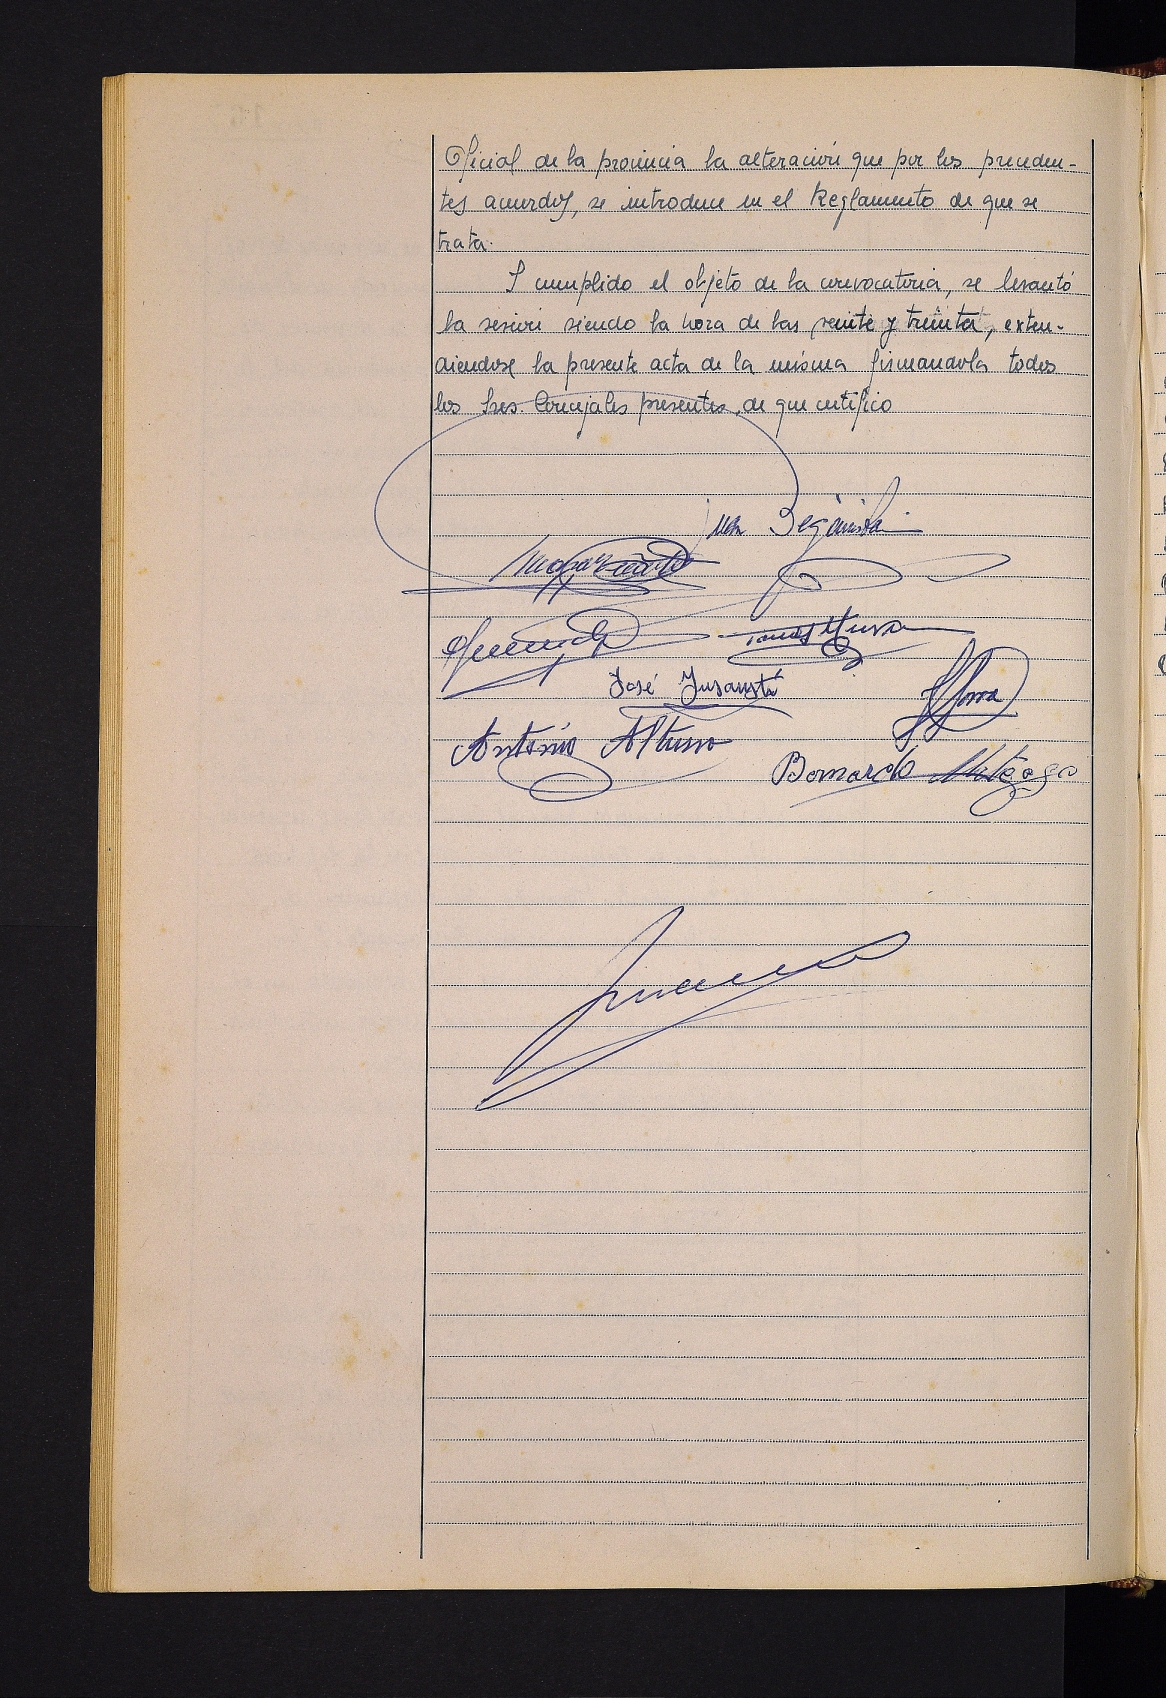 Oficial de la provincia la alteración que por los preceden-
tes acuerdos, se introduce en el Reglamento de que se
trata.
Y cumplido el objeto de la convocatoria, se levantó
la sesión siendo la hora de las veinte y treinta, exten-
diendose la presente acta de la misma firmandola todos
los Sres. Concejales presentes, de que certifico
Juan Beguiristain
José Insausti
Antonio Altuna
Bernardo